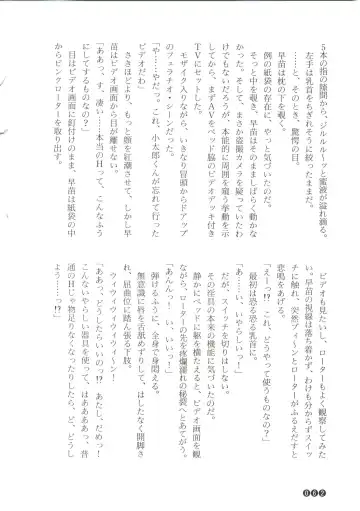 5本の指の隙間から、ジルルルーッと蜜液が溢れ滴る。
左手は乳首をちぎれそうに絞ったままだ。
……と、そのとき、驚愕の
早苗は枕の下を覗く。
例の紙袋の存在に、やっと気づいたのだ。
そっと中を覗き、早苗はそのまましばらく動かな
かった。そして、まさか盗撮カメラを仕掛けていたわ
けでもないだろうが、本能的に周囲を窺う挙動を示
してから、まずAVをベッド脇のビデオデッキ付き
TVにセットした。
モザイク入りながら、いきなり冒頭からドアップ
のフェラチオ・シーンだった。
「や……やだっ。これ、小太郎くんが忘れて行った
ビデオだわ」
さきほどより、もっと顔を紅潮させて、しかし早
苗はビデオ画面から目が離せない。
「ああっ、す、凄い……本当のHって、こんなふう
にしてするものなの?」
目はビデオ画面に釘付けのまま、早苗は紙袋の中
からピンクローターを取り出す。
ビデオも見たいし、ローターもよく観察してみた
い。早苗の視線は落ち着かず、わけも分からずスイッ
チに触れ、突然ブィーンとローターがふるえだすと
悲鳴をあげる。
「えーっ!? これ、どうやって使うものなの?」
最初は恐る恐る乳首に。
「あんっ! い、いやらしいっ!」
だが、スイッチを切りはしない。
その淫具の本来の機能に気づいたのだ。
静かにベッドに躯を横たえると、ビデオ画面を観
ながら、ローターの先を爛れの秘裂へとあてがう。
「あんんっ! い、いいっ!」
弾けるように、全身で身悶える。
無意識に唇を舌舐めずりして、はしたなく開脚さ
れ、屈曲位に踏ん張る下肢。
ウィウィウィウィウィィン!
「ああっ、どうしたらいいのっ!? あたし、だめっ!
こんないやらしい器具を使って、はああああっ、普
通のHじゃ物足りなくなったりしたら、ど、どうし
よう……っ!?」
062